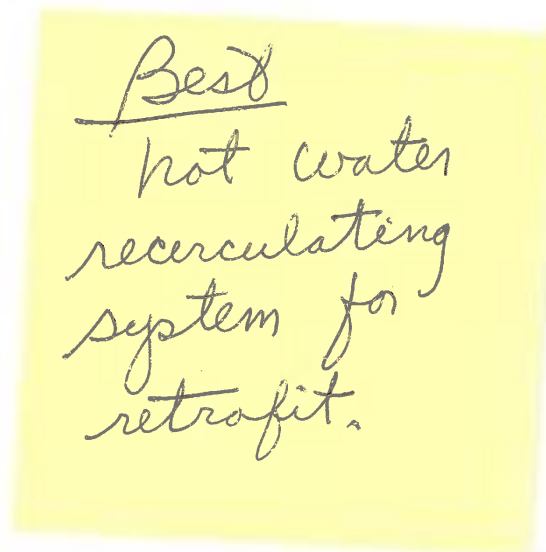 Best
hot water
recirculating
system for
retrofit.